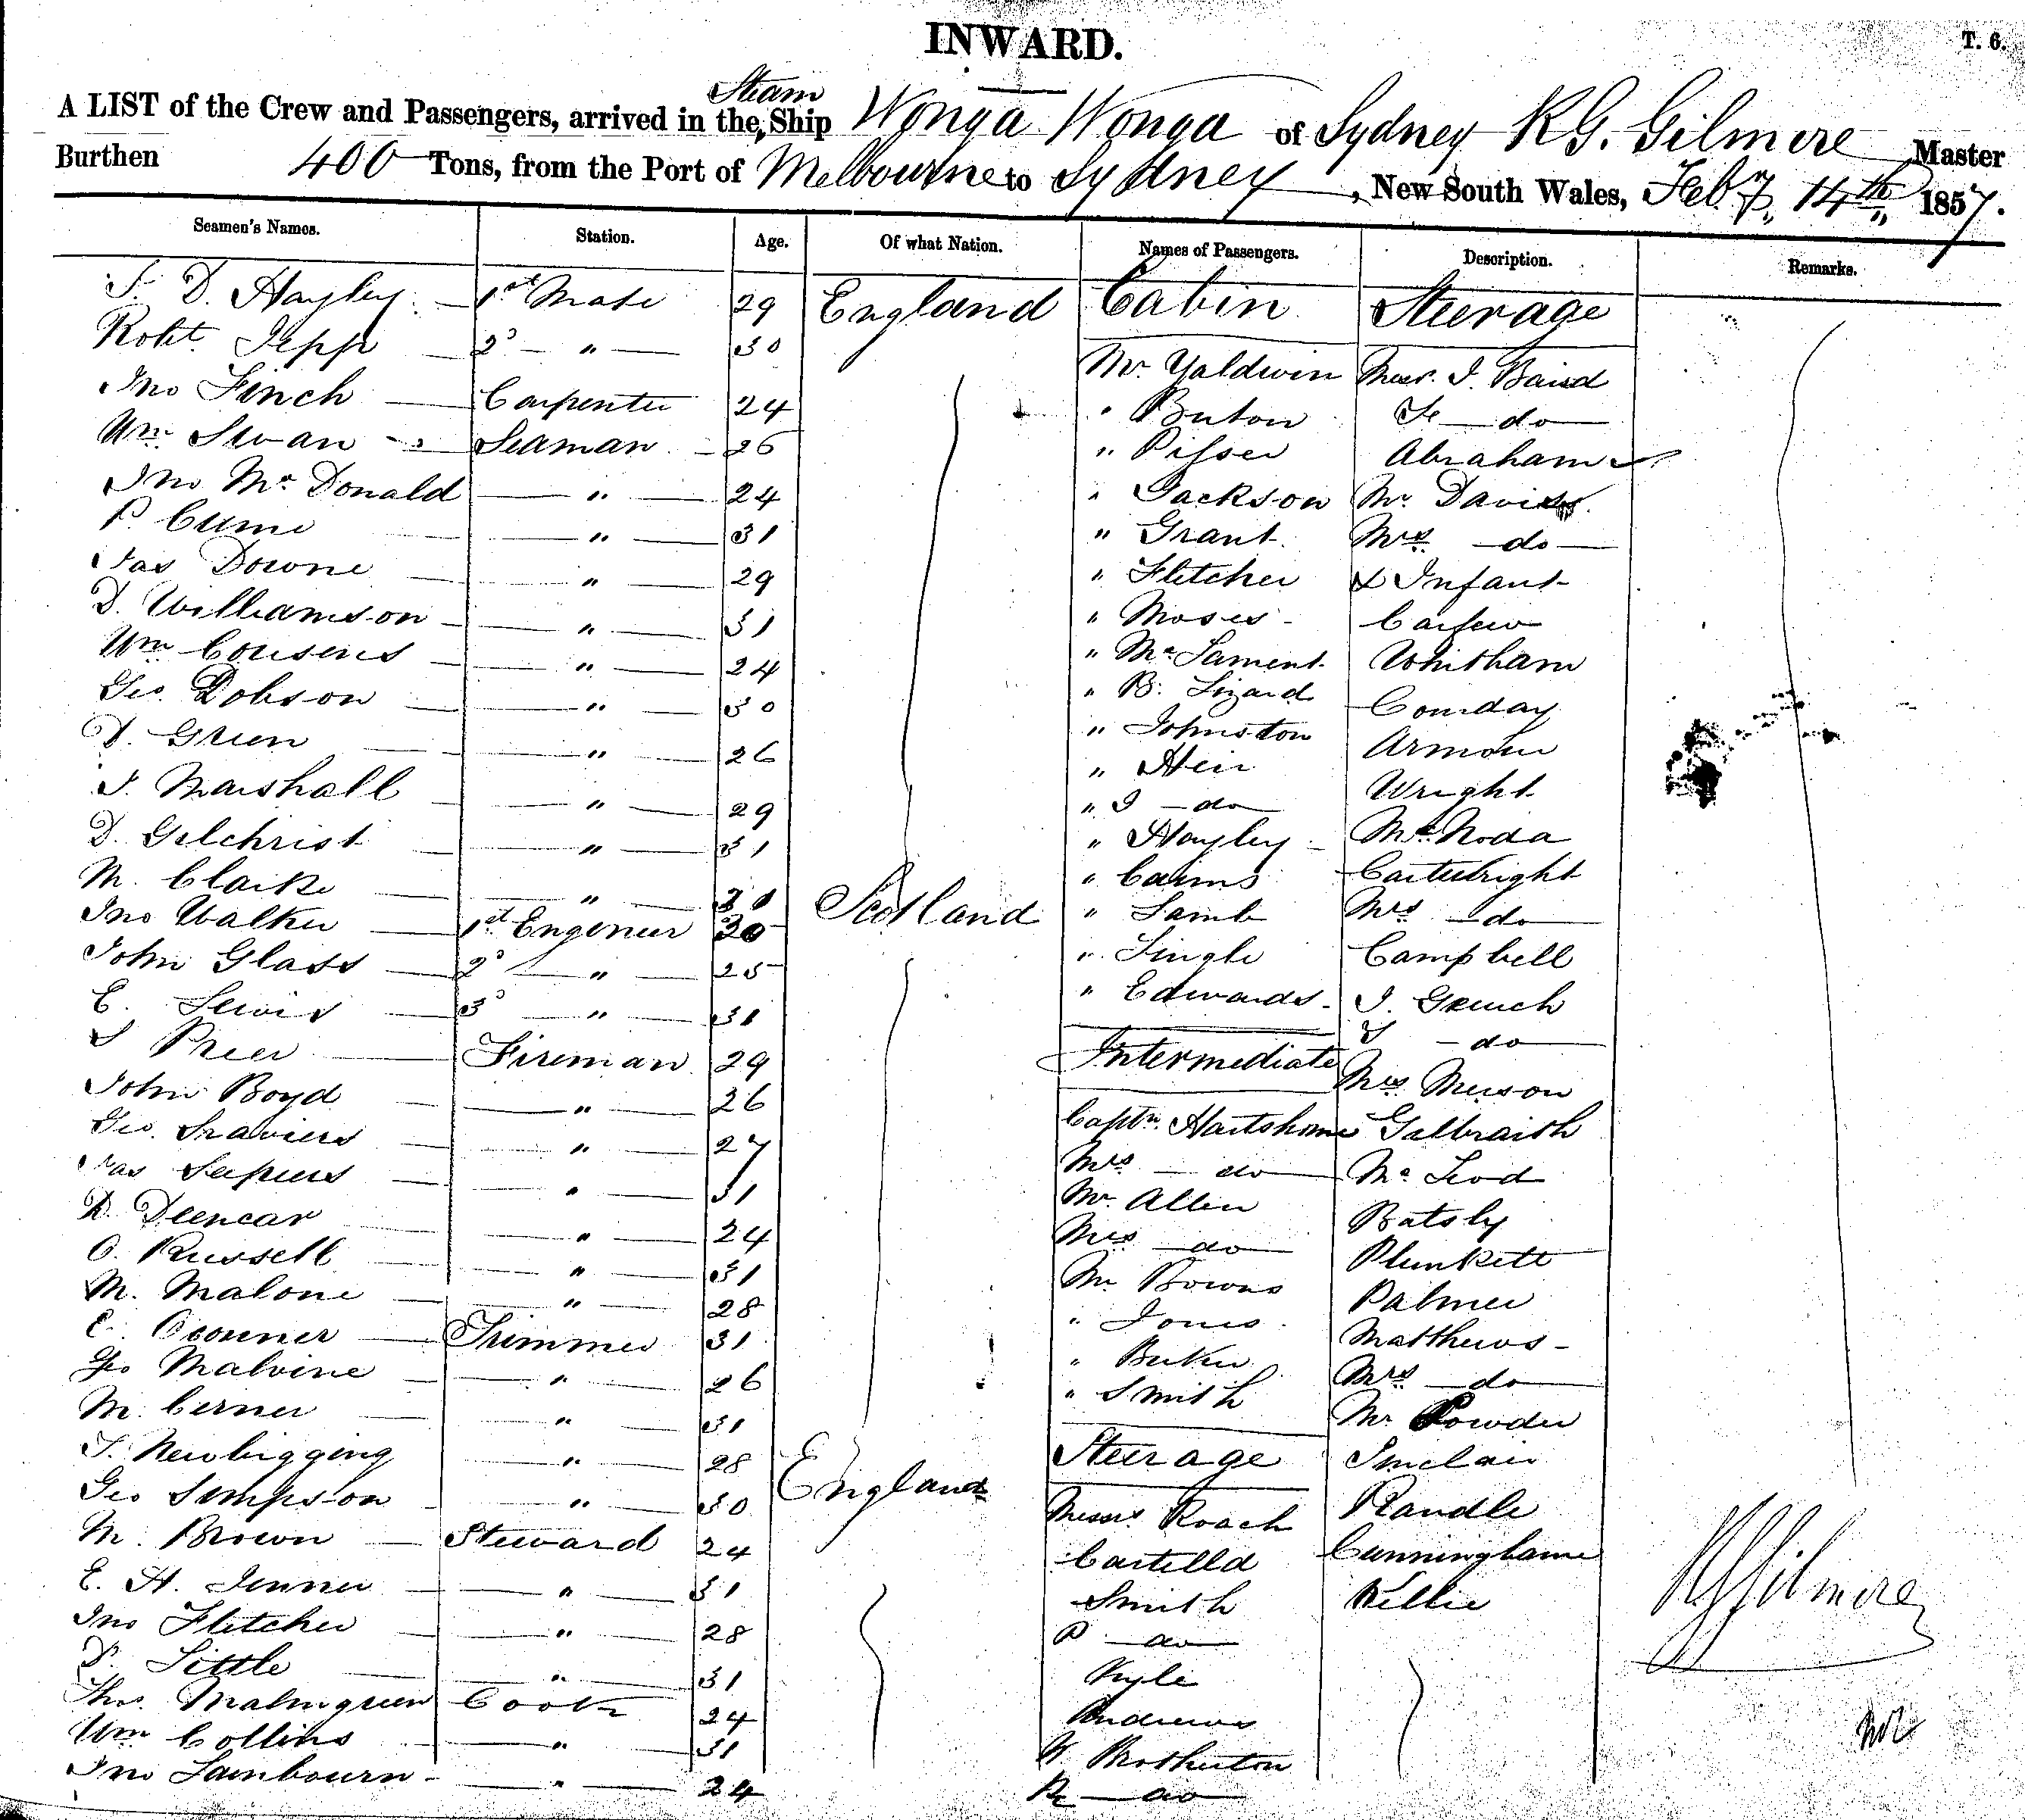 INWARD.
T. 6.
A LIST of the Crew and Passengers, arrived in the Steam Ship Wonga Wonga of Sydney R G. Gilmore Master
Burthen 400 Tons, from the Port of Melbourne to Sydney, New South Wales, Feby. 14th, 1857.
Seamen's Names. Station. Age. Of what Nation. Names of Passengers. Description. Remarks.
D. Hayley 1st Mate 29 England Cabin Steerage
Robt. Jepp 2d " 30 Mr. Yaldwin Messr. J. Baird
Jno Finch Carpenter 24 " Buton do
Wm Swan Seaman 26 " Abraham
Jno McDonald " 24 " Jackson Mr Davies
P. " 31 " Grant Mrs do
Jas Downe " 29 " Fletcher & Infant
D. Williamson " 31 " Moses
Wm Cousens " 24 " McLament Whitham
Geo. Dobson " 30 " B. Lizard
D. Green " 26 " Johnston Armour
J. Marshall " 29 " Heir Wright
D. Gilchrist " 31 " J do
M. Clarke " 31 " Hayley Cartwright
Jno Walker 1st Engineer 30 Scotland " Cairns Mrs do
John Glass 2d " 25 " Lamb Campbell
E. Lewis 3d " 31 " Single J.
Preer Fireman 29 " Edwards do
John Boyd " 26 Intermediate Mrs
Geo. " 27 Captn. Hartshorne Galbraith
Jas " 31 Mrs do McLeod
D. " 24 Mr Allen Batsby
O. Russell " 31 Mrs do Plunkett
M. Malone " 28 Mr Bowns Palmer
C. Oconner Trimmer 31 " Jones Matthews
Geo Malvine " 26 " Mrs do
M. " 31 " Smith Mr Powder
T. Newbigging " 28 Steerage Sinclair
Geo Simpson " 30 England Messrs Roach Randle
M. Brown Steward 24 Cunninghame
E. H. Jenner " 31 Smith Kellie
Jno Fletcher " 28 P do
Little " 31 Kyle
Thos. Malmgreen Cook 24 Andrews
Wm Collins " 31 W Brotherton
Jno Lambourn " 24 R do
R G Gilmore